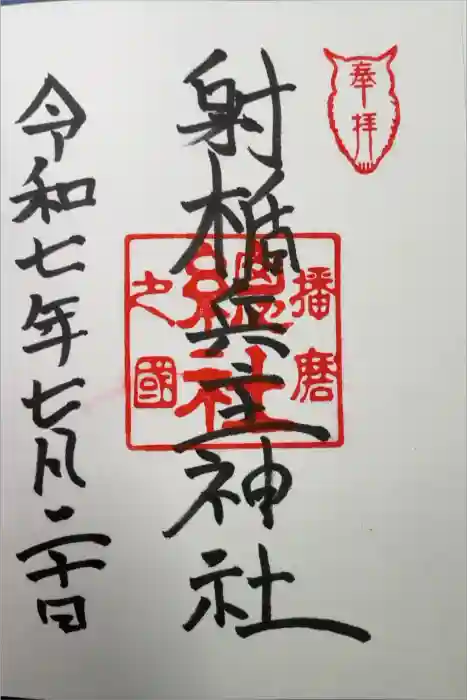 奉拝
射楯兵主神社
播磨
総社
之國
令和七年七月二十日